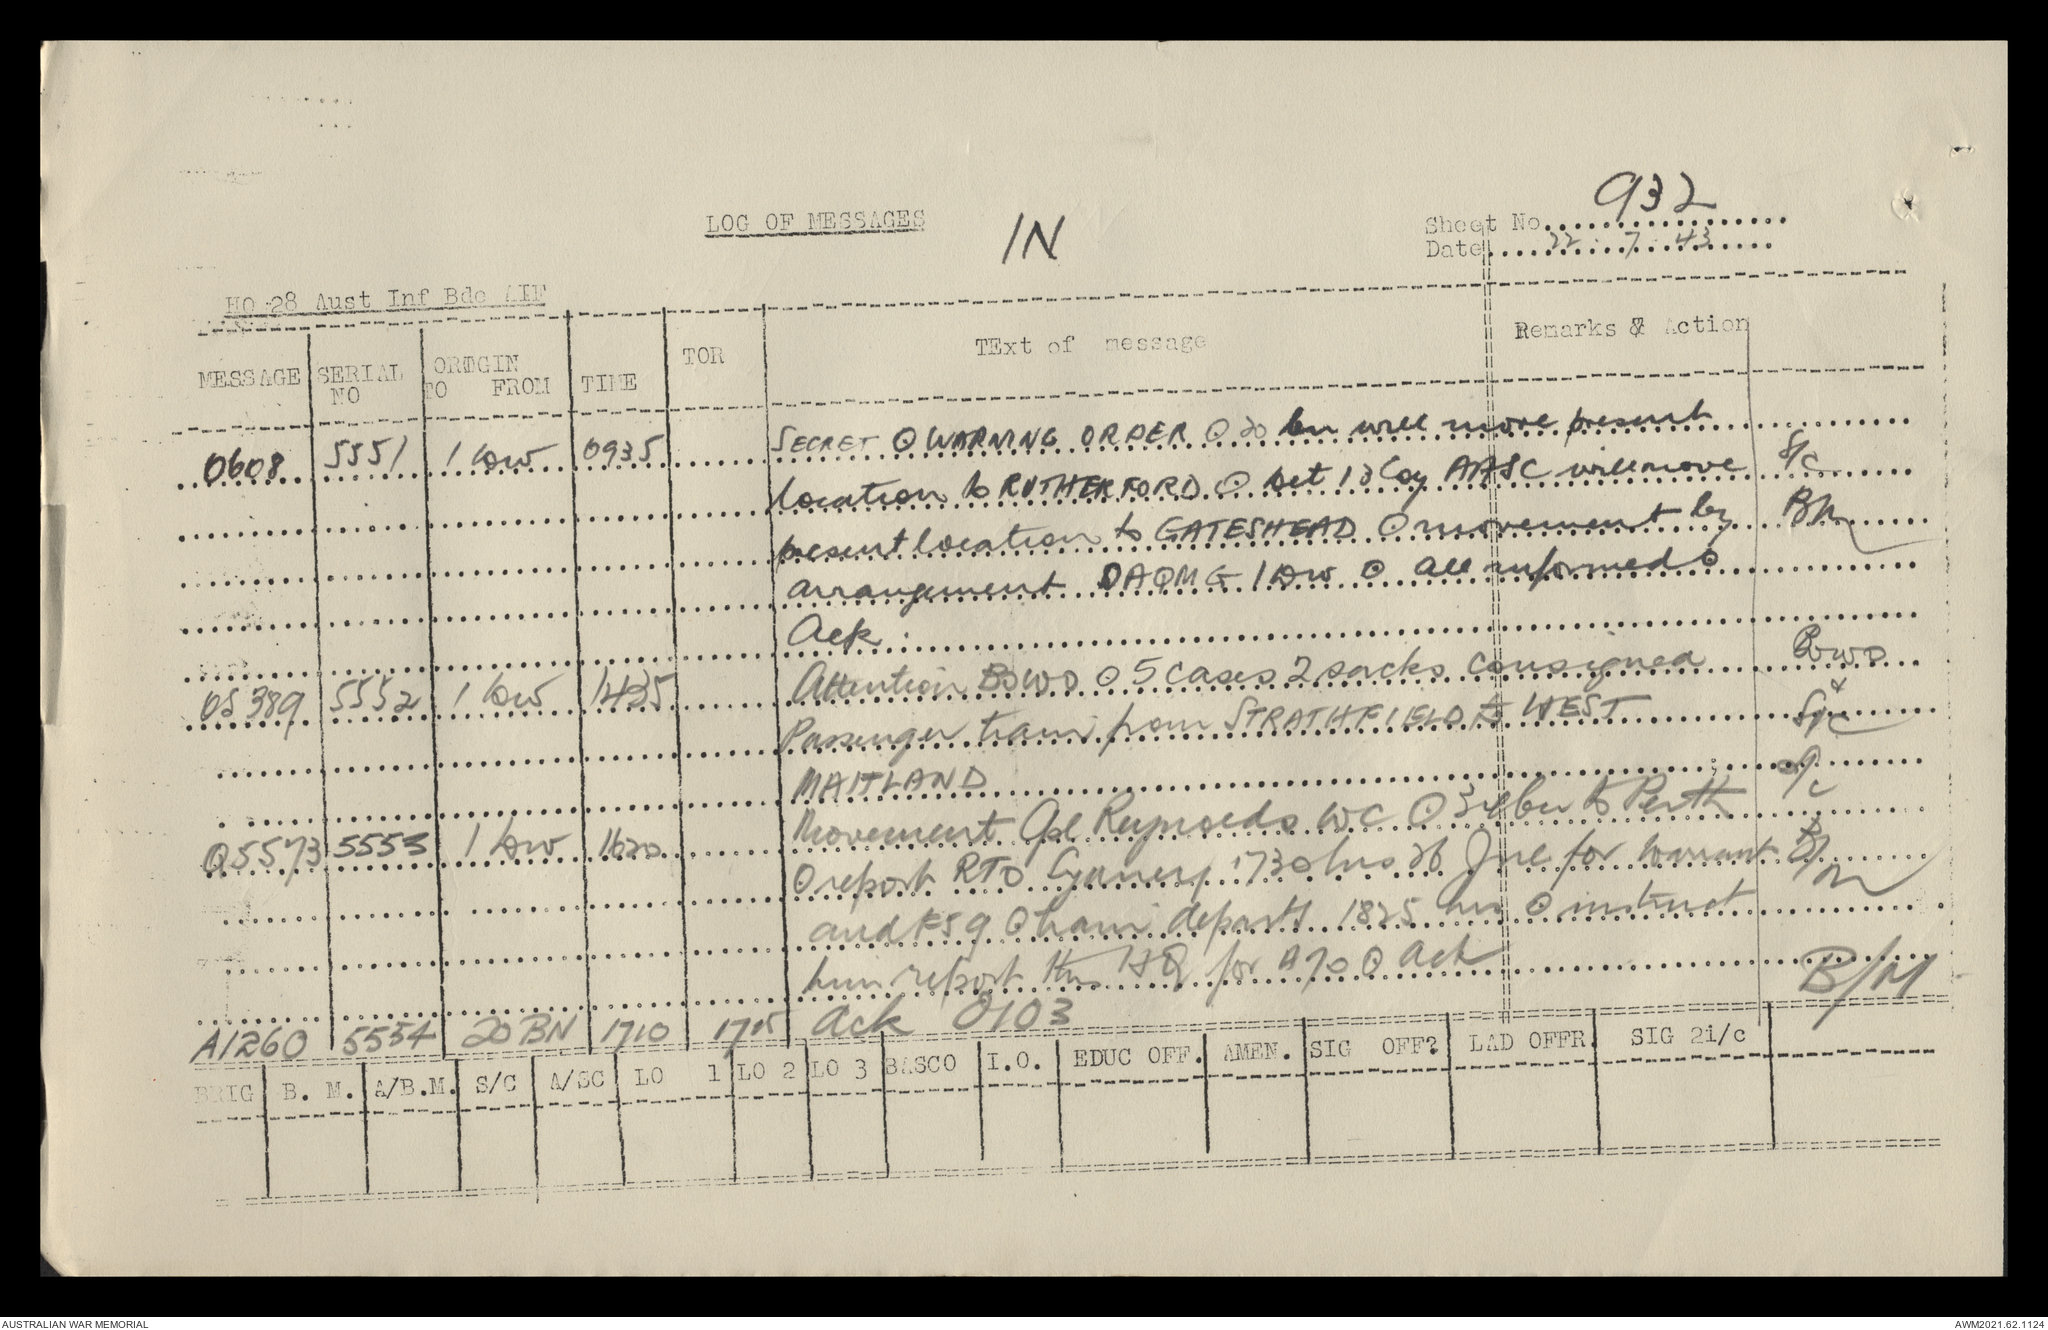 932
LOG OF MESSAGES
IN
Sheet No
Date 22 7 43
HQ 28 Aust Inf Bde AIF
MESSAGE SERIAL NO ORIGIN TO FROM TIME TOR TExt of message Remarks & Action
0608 5551 1 Div 0935 SECRET ⊙ WARNING ORDER ⊙ 20 bn will move present
location to RUTHERFORD ⊙ Det 13 Coy AASC will move S/C
present location to GATESHEAD ⊙ movement by BM
arrangement DAQMG 1 Div ⊙ all informed ⊙
Ack
OS389 5552 1 Div 1435 Attention BOWO ⊙ 5 cases 2 sacks consigned BOWO
Passenger train from STRATHFIELD to WEST & S/C
MAITLAND
Q5573 5553 1 Div 1620 Movement Reynolds WC ⊙ to Perth S/C
⊙ report RTO Sydney 1730 hrs 26 for warrant B/M
and ⊙ train departs 1825 hrs ⊙ instruct
him report this HQ for ⊙ Ack
A1260 5554 20 BN 1710 1715 Ack 0103 B/M
BRIG B. M. A/B.M. S/C A/SC LO 1 LO 2 LO 3 BASCO I.O. EDUC OFF. AMEN. SIG OFF? LAD OFFR. SIG 2i/c
AUSTRALIAN WAR MEMORIAL
AWM2021.62.1124